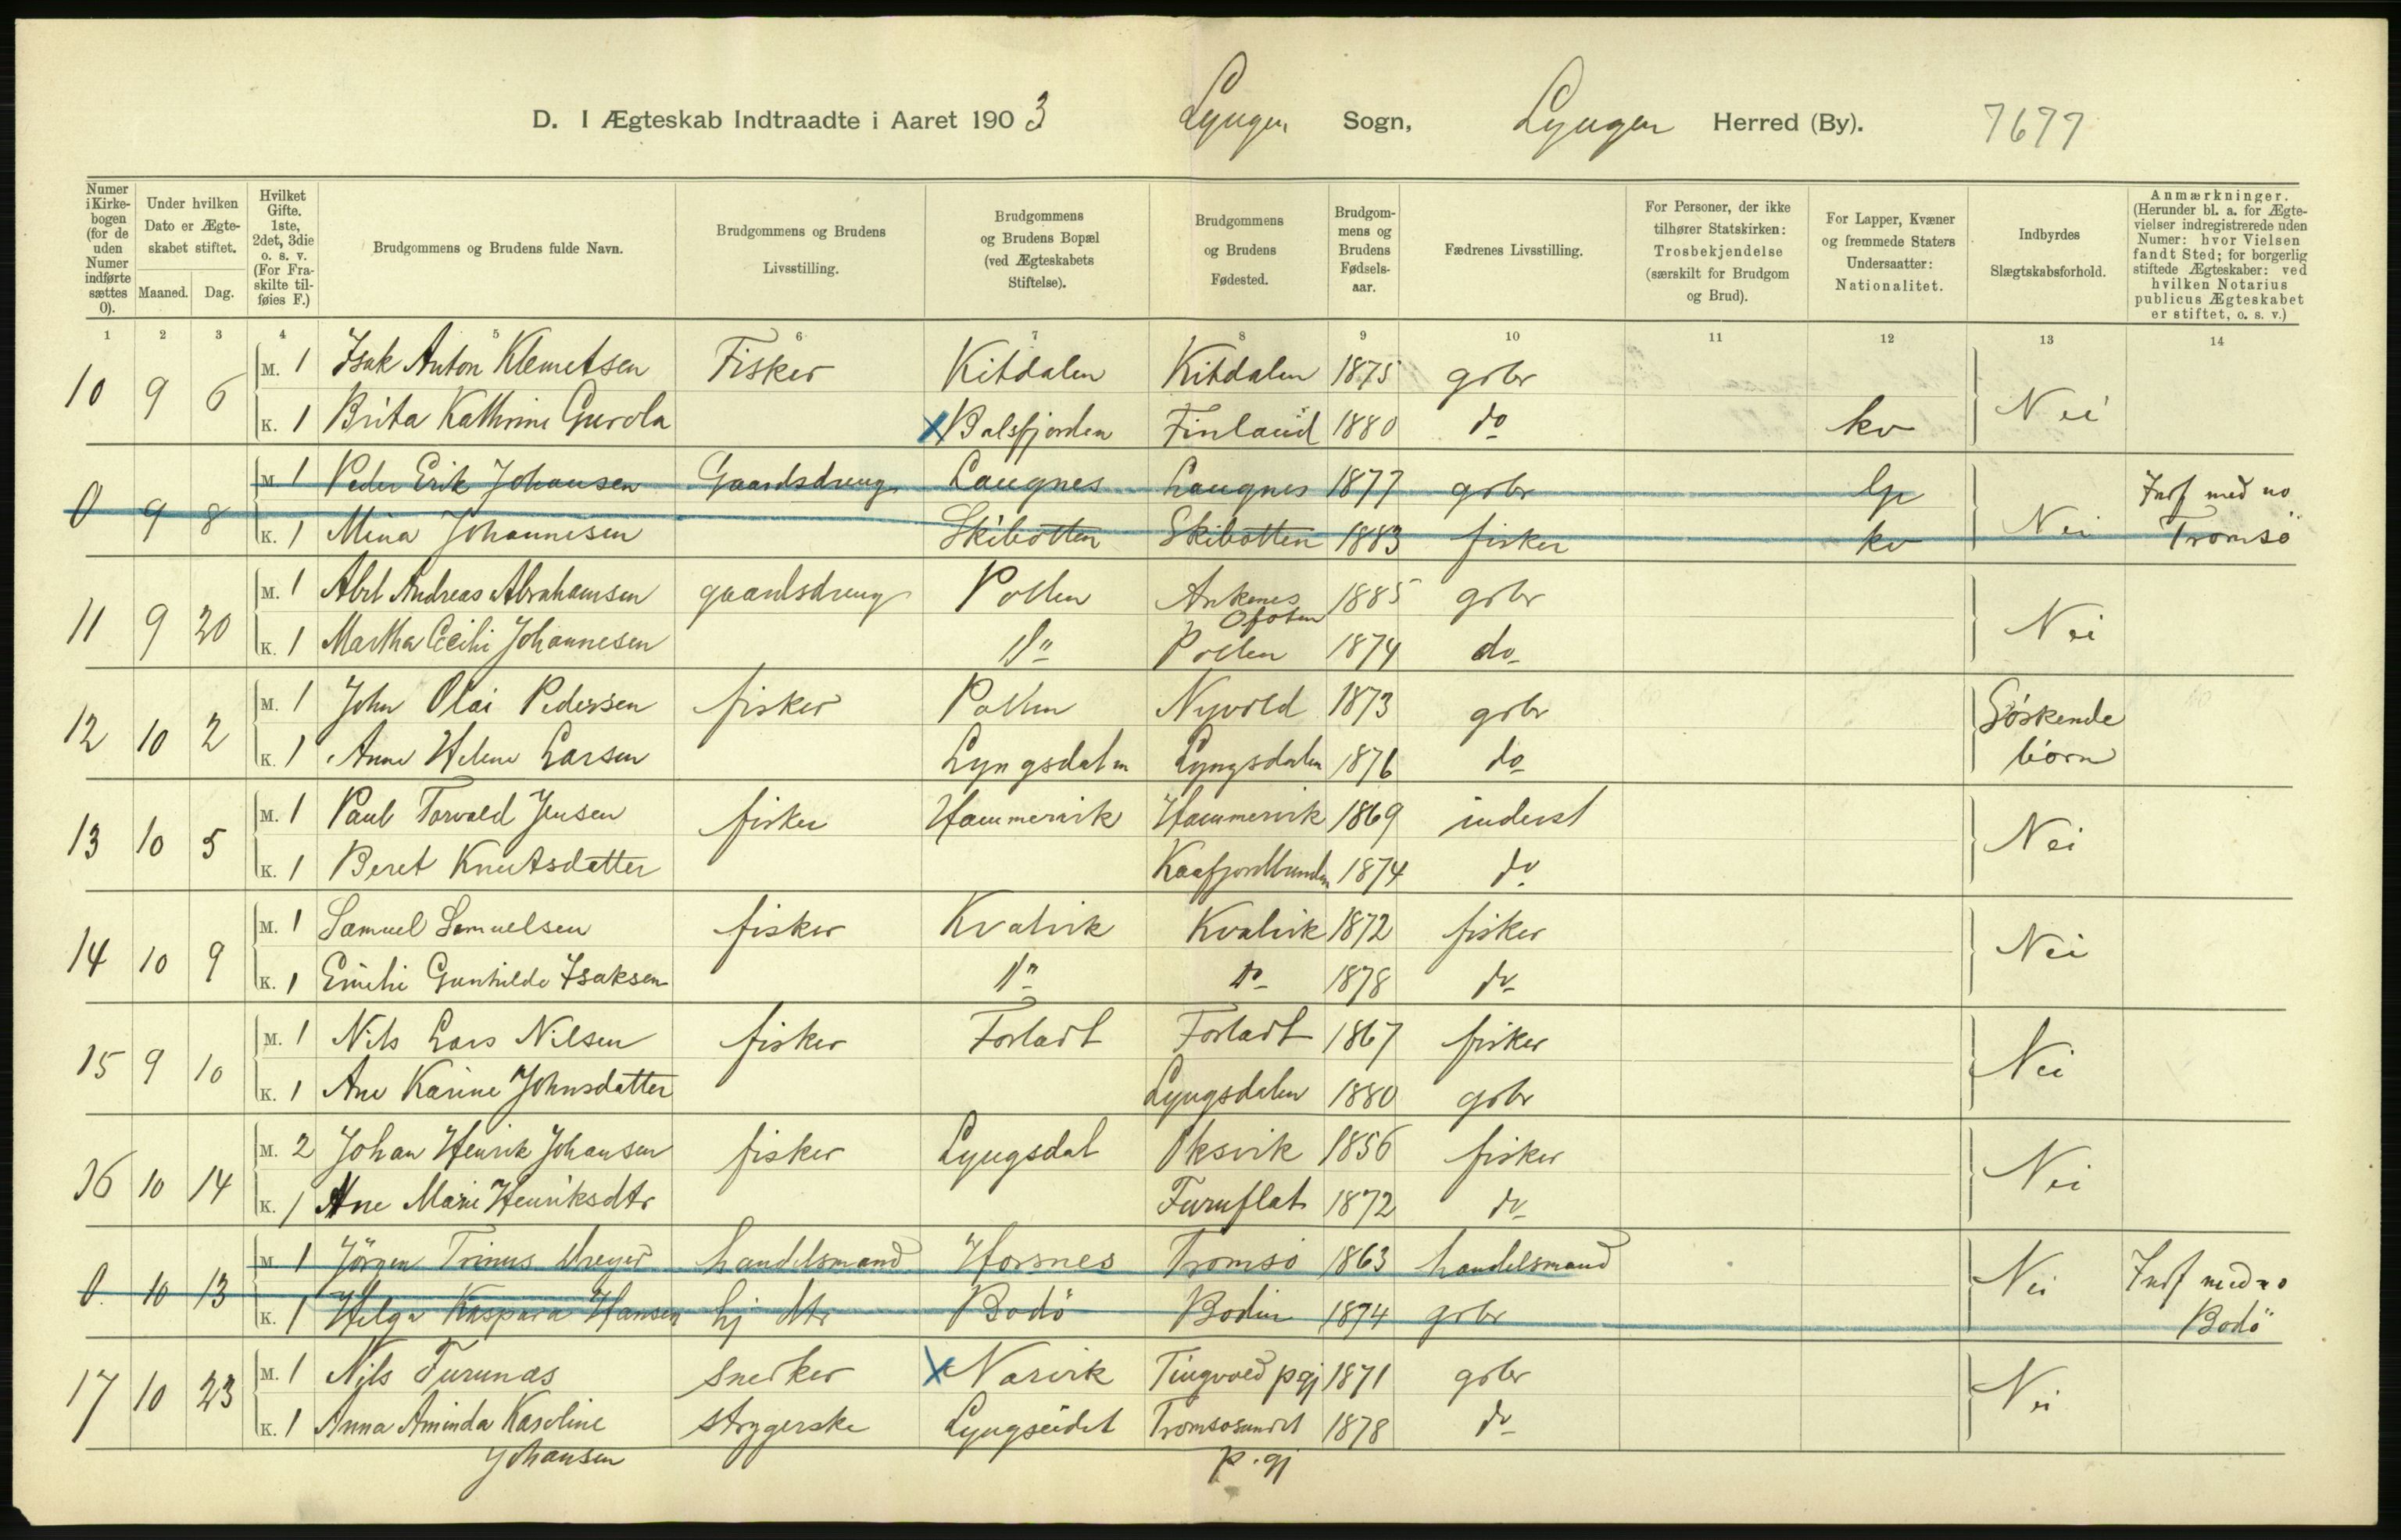 D. I Ægteskab Indtraadte i Aaret 1903 Lyngen Sogn, Lyngen Herred (By). 7677
Numer i Kirke-bogen (for de uden Numer indførte sættes 0).
Under hvilken Dato er Ægte-skabet stiftet.
Maaned. Dag.
Hvilket Gifte. 1ste, 2det, 3die o. s. v. (For Fra-skilte til-føies F.)
Brudgommens og Brudens fulde Navn.
Brudgommens og Brudens Livsstilling.
Brudgommens og Brudens Bopæl (ved Ægteskabets Stiftelse).
Brudgommens og Brudens Fødested.
Brudgom-mens og Brudens Fødsels-aar.
Fædrenes Livsstilling.
For Personer, der ikke tilhører Statskirken: Trosbekjendelse (særskilt for Brudgom og Brud).
For Lapper, Kvæner og fremmede Staters Undersaatter: Nationalitet.
Indbyrdes Slægtskabsforhold.
Anmærkninger. (Herunder bl. a. for Ægte-vielser indregistrerede uden Numer: hvor Vielsen fandt Sted; for borgerlig stiftede Ægteskaber: ved hvilken Notarius publicus Ægteskabet er stiftet, o. s. v.)
1 2 3 4 5 6 7 8 9 10 11 12 13 14
10 9 6 M. 1 Isak Anton Klemetsen Fisker Kitdalen Kitdalen 1875 grbr Nei
K. 1 Brita Kathrine Gurola X Balsfjorden Finland 1880 do kv
0 9 8 M. 1 Peder Erik Johansen Gaardsdreng Laugnes Laugnes 1877 grbr lp Nei Indf med no
K. 1 Mina Johannesen Skibotten Skibotten 1883 fisker kv Tromsö
11 9 20 M. 1 Abel Andreas Abrahamsen gaardsdreng Pollen Ankenes Ofoten 1885 grbr Nei
K. 1 Martha Cecilie Johannesen Do Pollen 1874 do
12 10 2 M. 1 John Olai Pedersen fisker Pollen Nyvold 1873 grbr Söskende
K. 1 Anne Helene Larsen Lyngsdalen Lyngsdalen 1876 do börn
13 10 5 M. 1 Paul Torvald Jensen fisker Hammervik Hammervik 1869 inderst Nei
K. 1 Beret Knutsdatter Kaafjordbunden 1874 do
14 10 9 M. 1 Samuel Samuelsen fisker Kvalvik Kvalvik 1872 fisker Nei
K. 1 Emilie Gunhilde Isaksen Do Do 1878 do
15 9 10 M. 1 Nils Lars Nilsen fisker Forladt Forladt 1867 fisker Nei
K. 1 Ane Karine Johnsdatter Lyngsdalen 1880 grbr
16 10 14 M. 2 Johan Henrik Johansen fisker Lyngsdal Oksvik 1856 fisker Nei
K. 1 Ane Marie Henriksdtr Furuflat 1872 do
0 10 13 M 1 Jörgen Trinus Dreyer handelsmand Horsnes Tromsö 1863 handelsmand Nei Indf med no
K. 1 Helga Kaspara Hansen hj dtr Bodö Bodin 1874 grbr Bodö
17 10 23 M. 1 Nils Furunæs snedker X Narvik Tingvold pgj 1871 grbr Nei
K. 1 Anna Aminda Karoline strygerske Lyngseidet Tromsosundet 1878 do
Johansen p. gj